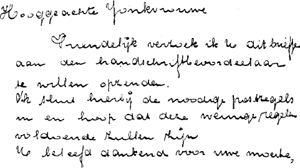 Hooggeachte Jonkvrouwe
Vriendelijk verzoek ik U dit briefje
aan den handschriftbeoordeelaar
te willen opzenden.
Ik sluit hierbij de noodige postzegels
in en hoop dat deze weinige regelen
voldoende zullen zijn
U beleefd dankend voor uwe moeite,